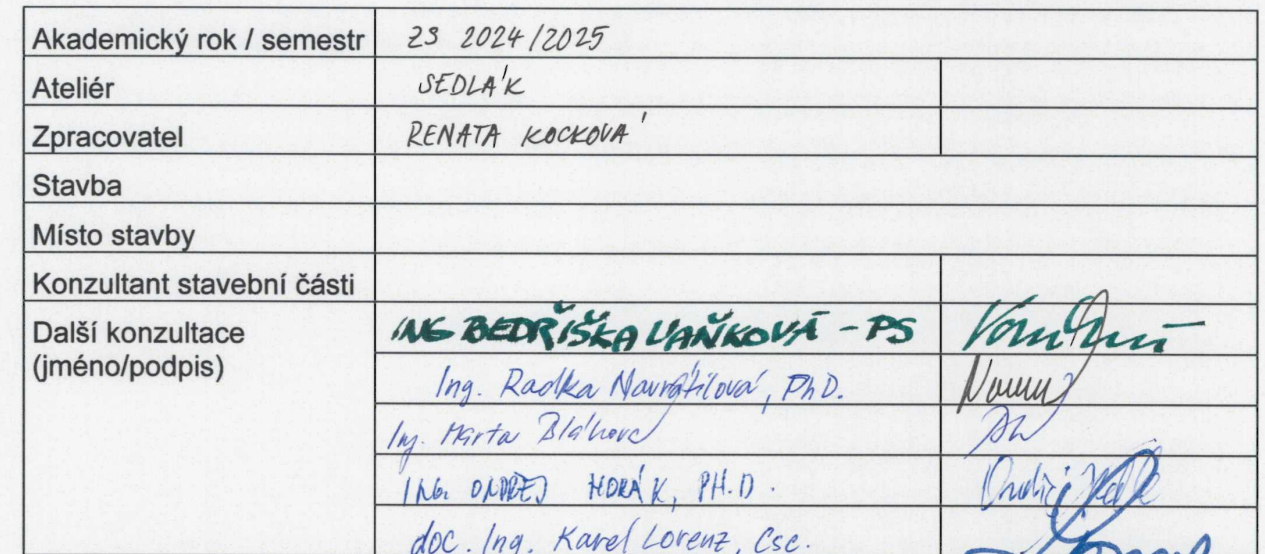 Akademický rok / semestr ZS 2024/2025
Ateliér SEDLÁK
Zpracovatel RENATA KOCKOVÁ
Stavba
Místo stavby
Konzultant stavební části
Další konzultace ING BEDŘIŠKA VAŇKOVÁ - PS
(jméno/podpis) Ing. Radka Navrátilová, PhD.
Ing. Marta Bláhová
ING. ONDŘEJ HORÁK, PH.D.
doc. Ing. Karel Lorenz, Csc.